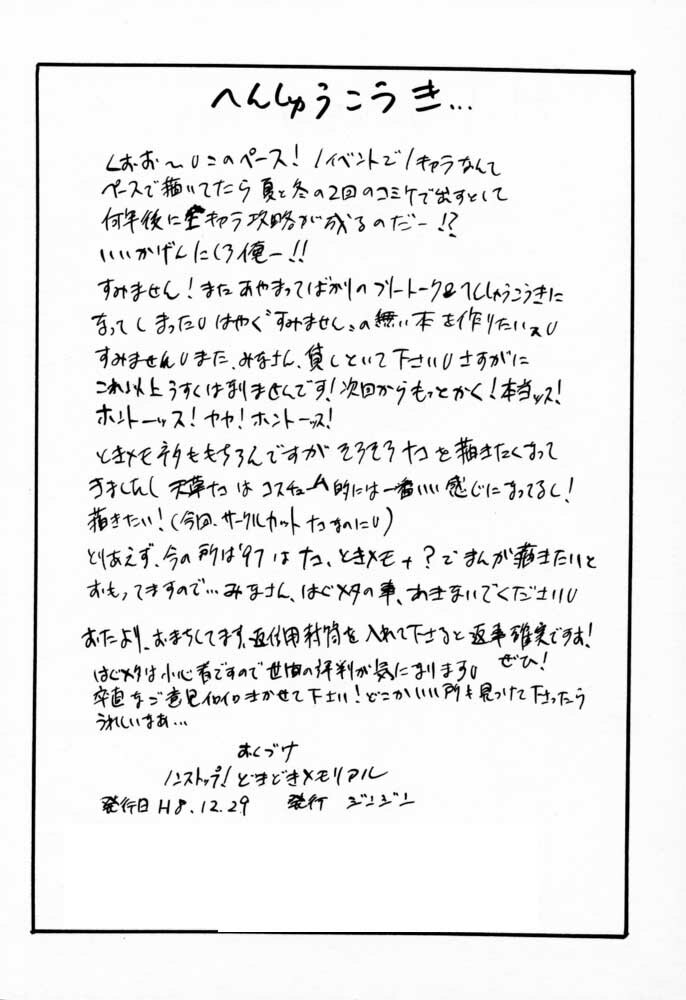 へんしゅうこうき…
くぉお～∪このペース！1イベントで1キャラなんて
ペースで描いてたら夏と冬の2回のコミケで出すとして
何年後に全キャラ攻略が成るのだー!?
いいかげんにしろ俺ー!!
すみません！またあやまってばかりのフリートーク&へんしゅうこうきに
なってしまった∪はやく“すみません”の無い本を作りたいっス∪
すみません∪また、みなさん、貸しといて下さい∪さすがに
これ以上うすくはなりませんです！次回からもっとかく！本当ッス！
ホントーッス！ヤヤ！ホントーッス！
ときメモネタももちろんですがそろそろナコを描きたくなって
きましたし天草ナコはコスチューム的には一番いい感じになってるし！
描きたい！（今回、サークルカットナコなのに∪）
とりあえず、今の所は'97はナコ、ときメモ＋？でまんが描きたいと
おもってますので…みなさん、はぐメタの事、あきないでください∪
おたより、おまちしてます、返信用封筒を入れて下さると返事確実ですよ！
はぐメタは小心者ですので世間の評判が気になります∪　ぜひ！
率直なご意見イロイロきかせて下さい！どこかいい所も見つけて下さったら
うれしいなぁ…
おくづけ
ノンストップ！どきどきメモリアル
発行日 H8.12.29　発行　ジンジン